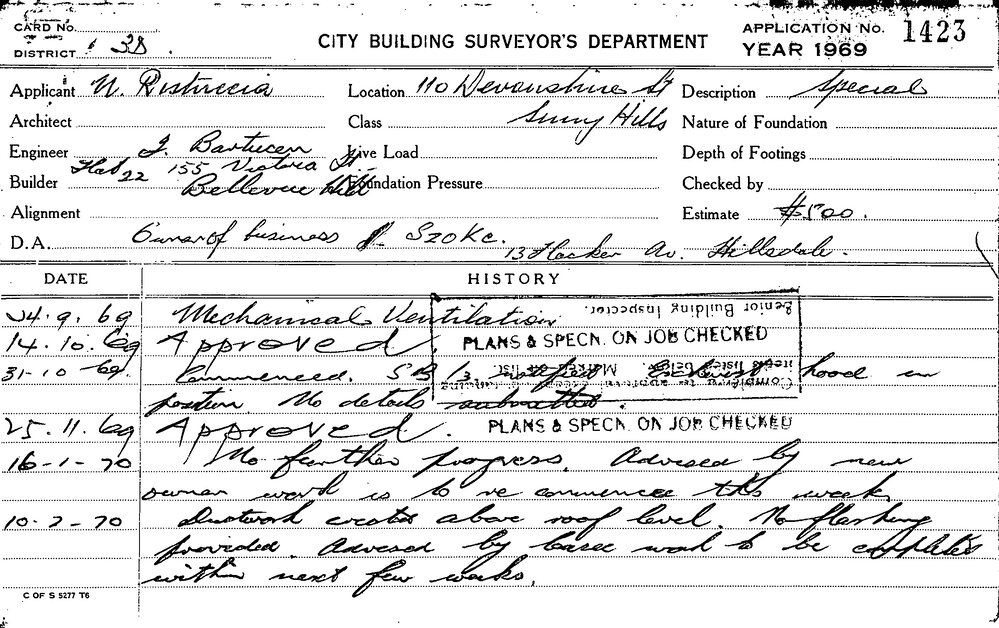 CARD No.
DISTRICT 38.
CITY BUILDING SURVEYOR'S DEPARTMENT
APPLICATION No. 1423
YEAR 1969
Applicant N. Restuccia Location 110 Devonshire St Description Special
Architect Class Surry Hills Nature of Foundation
Engineer J. Live Load Depth of Footings
Flat 22 155 Victoria St.
Builder Bellevue Hill Foundation Pressure Checked by
Alignment Estimate $500.
D.A. Owner of business J. Szoke. 13 Flacker Av. Hillsdale.
DATE HISTORY
24.9.69 Mechanical Ventilation
Senior Building Inspector.
14.10.69 Approved PLANS & SPECN. ON JOB CHECKED
31-10-69. Commenced. hood in
Completed to approval except
items listed below.
position. No details submitted.
25.11.69 Approved. PLANS & SPECN. ON JOB CHECKED
16-1-70 No further progress. Advised by new
owner work is to re commence this week
10-2-70 Ductwork erected above roof level. No flashing
provided. Advised by work to be completed
within next few weeks.
C OF S 5277 T6